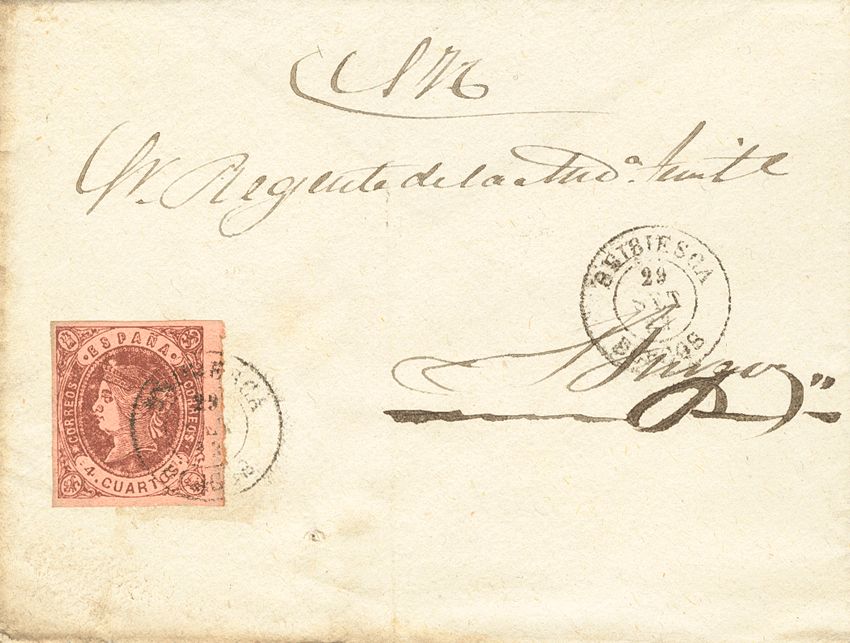 S N
Sr. Regente de la Aud.ª Territ.l
BRIBIESCA
29
SET
BURGOS
Burgos
ESPAÑA
CORREOS CORREOS
4 CUARTOS
29